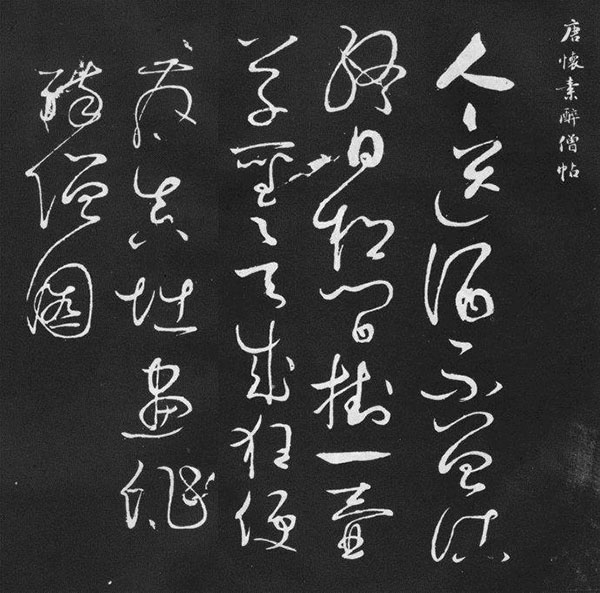 唐懷素醉僧帖
人〻送酒不曾沽
終日松間掛一壺
草聖欲成狂便
發真堪畫
醉僧圖